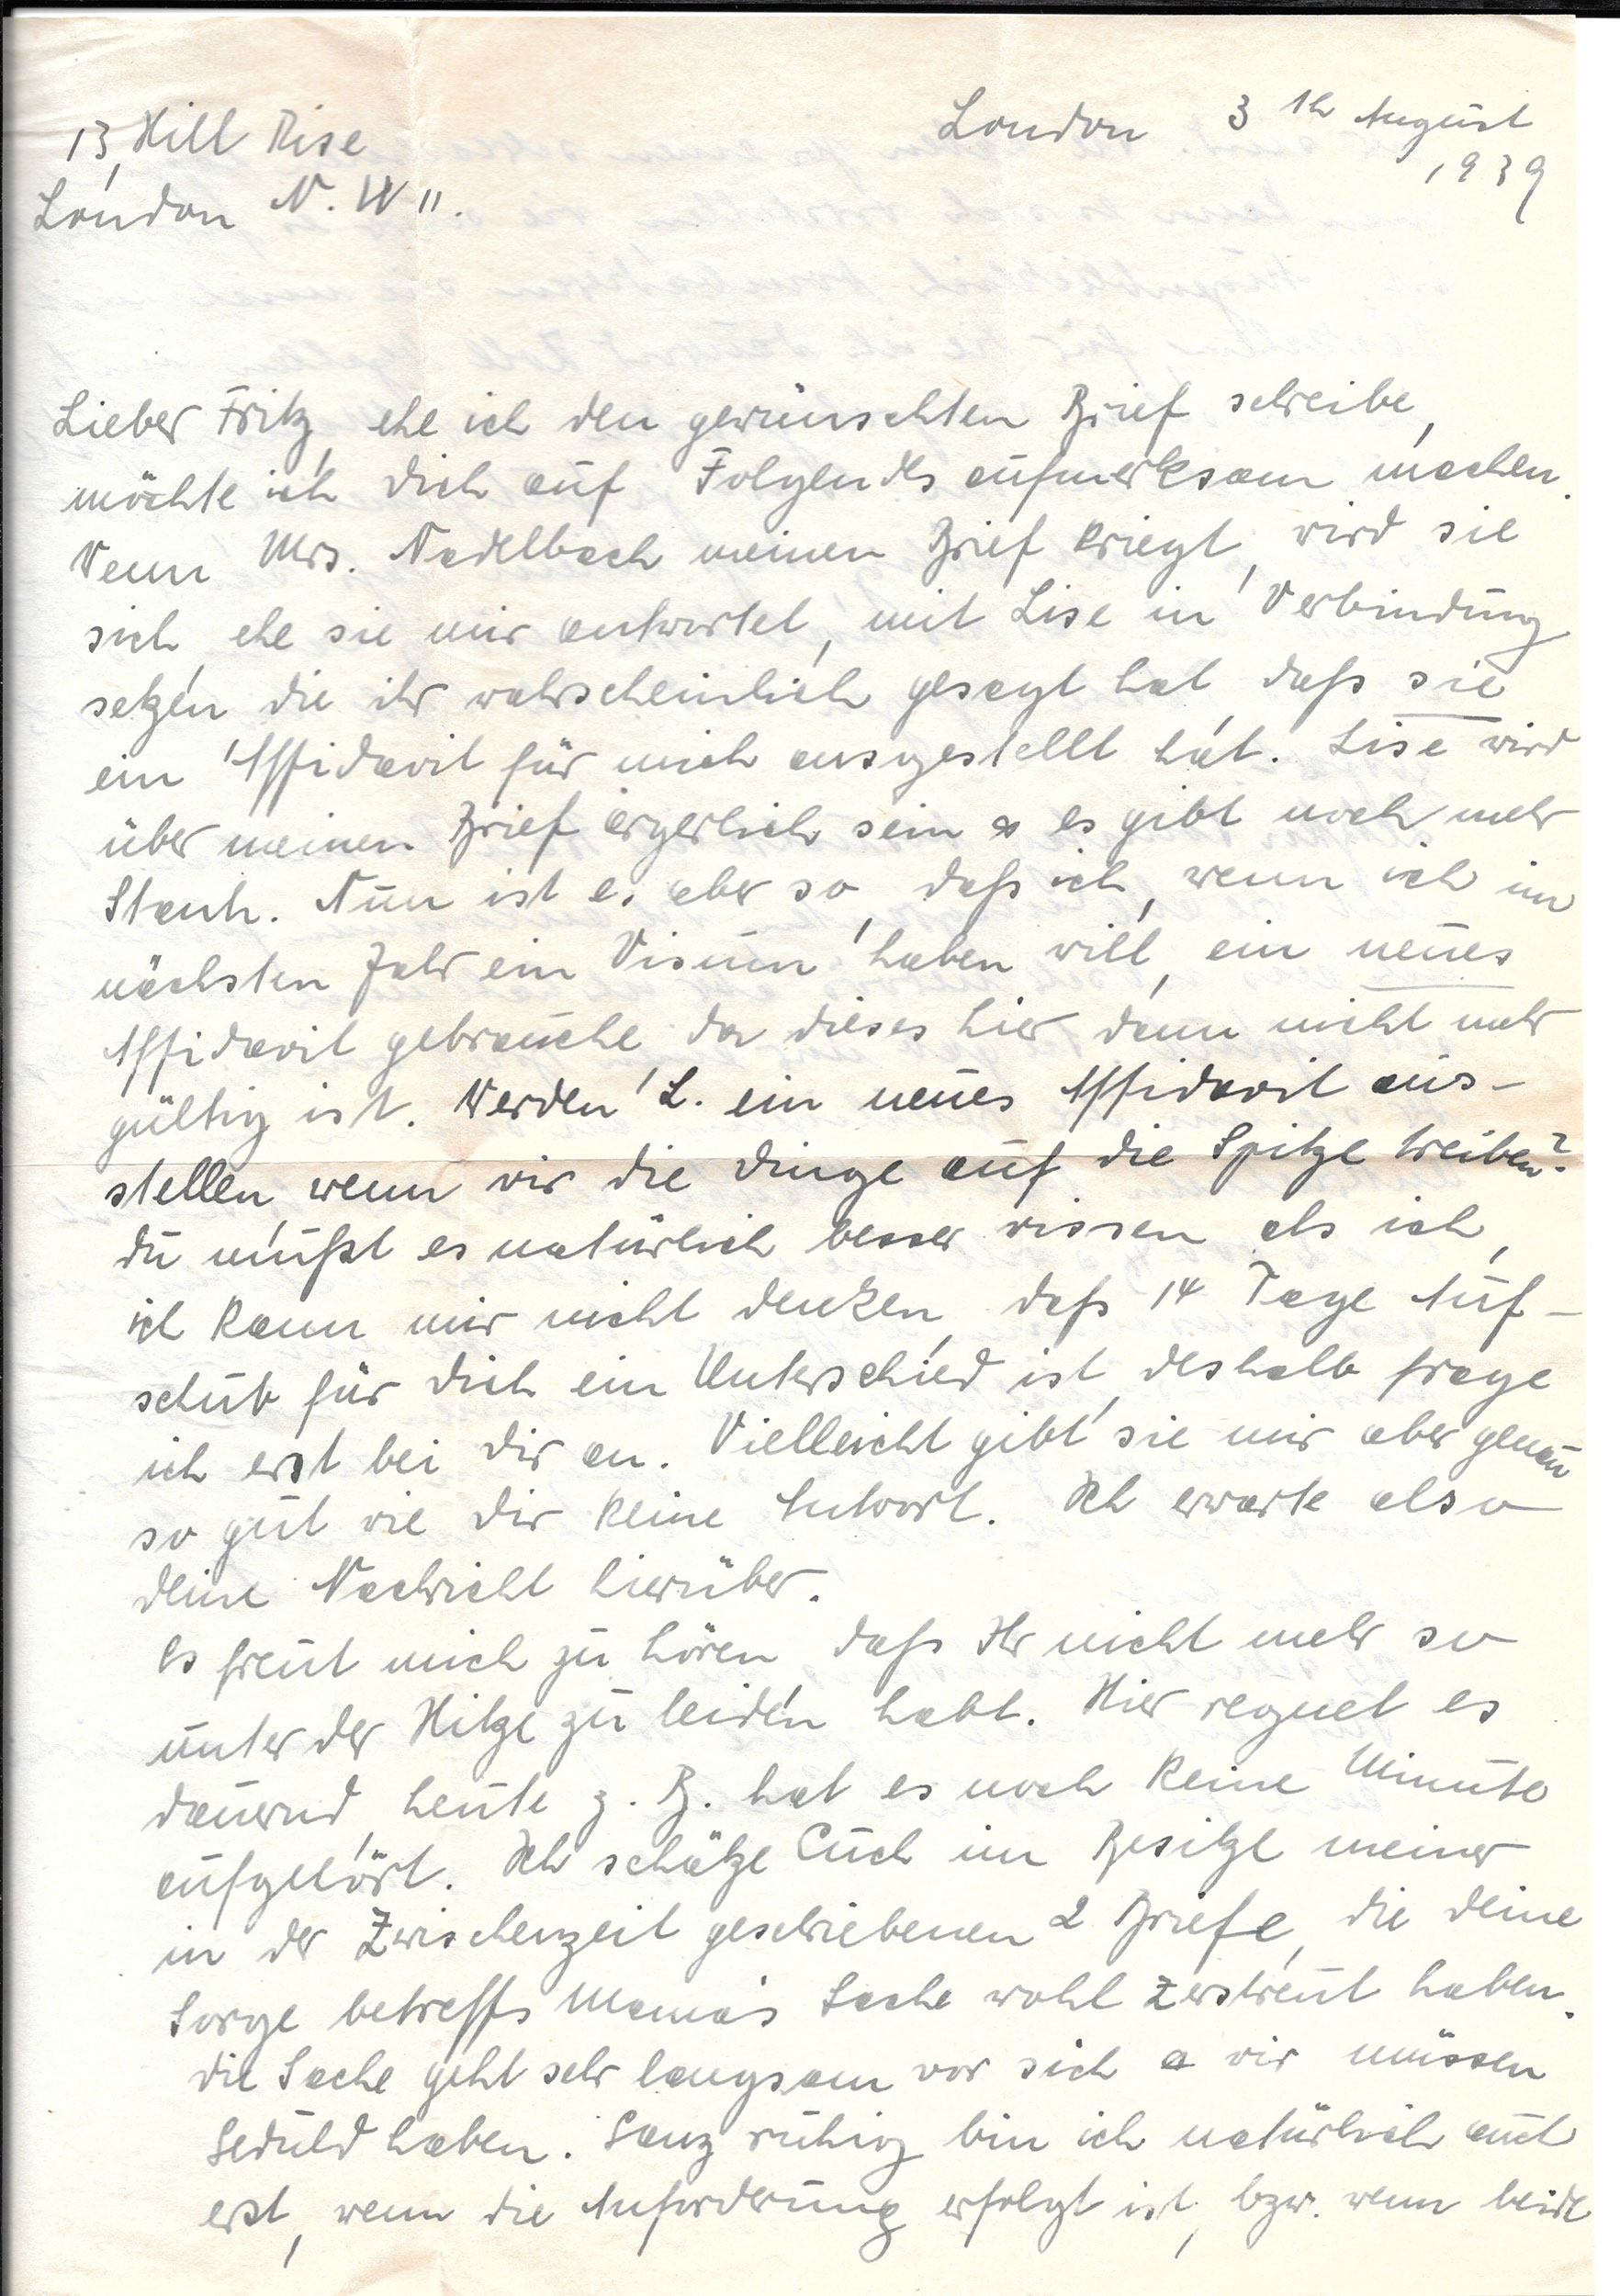 13, Hill Rise
London N.W 11.
London 3 th August
1939
Lieber Fritz, ehe ich den gewünschten Brief schreibe,
möchte ich Dich auf Folgendes aufmerksam machen.
Wenn Mrs. Nadelbach meinen Brief kriegt, wird sie
sich, ehe sie mir antwortet, mit Lise in Verbindung
setzen, die ihr wahrscheinlich gesagt hat, daß sie
ein Affidavit für mich ausgestellt hat. Lise wird
über meinen Brief ärgerlich sein & es gibt noch mehr
Stank. Nun ist es aber so, daß ich, wenn ich im
nächsten Jahr ein Visum haben will, ein neues
Affidavit gebrauche da dieses hier dann nicht mehr
gültig ist. Werden L. ein neues Affidavit aus-
stellen, wenn wir die Dinge auf die Spitze treiben?
Du mußt es natürlich besser wissen als ich,
ich kann mir nicht denken, daß 14 Tage Auf-
schub für Dich ein Unterschied ist, deshalb frage
ich erst bei Dir an. Vielleicht gibt sie mir aber genau
so gut wie Dir keine Antwort. Ich erwarte also
Deine Nachricht hierüber.
Es freut mich zu hören, daß Ihr nicht mehr so
unter der Hitze zu leiden habt. Hier regnet es
dauernd, heute z. B. hat es noch keine Minute
aufgehört. Ich schätze Euch im Besitze meiner
in der Zwischenzeit geschriebenen 2 Briefe, die Deine
Sorge betreffs Mama's Sache wohl zerstreut haben.
Die Sache geht sehr langsam vor sich & wir müssen
Geduld haben. Ganz ruhig bin ich natürlich auch
erst, wenn die Anforderung erfolgt ist, bzw. wenn beide